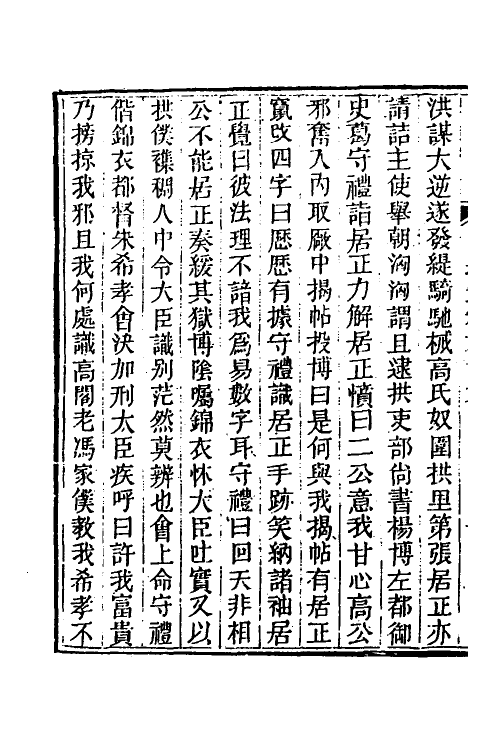 洪謀大逆遂發緹騎馳械高氏奴圍拱里第張居正亦
請詰主使舉朝洶洶謂且逮拱吏部尚書楊博左都御
史葛守禮詣居正力解居正憤曰二公意我甘心高公
邪奮入內取厰中揭帖投博曰是何與我揭帖有居正
竄改四字曰歷歷有據守禮識居正手跡笑納諸袖居
正覺曰彼法理不諳我為易數字耳守禮曰回天非相
公不能居正奏緩其獄博陰囑錦衣怵大臣吐實又以
拱僕襍稠人中令大臣識別茫然莫辨也會上命守禮
偕錦衣都督朱希孝會決加刑大臣疾呼曰許我富貴
乃搒掠我邪且我何處識高閣老馮家僕教我希孝不